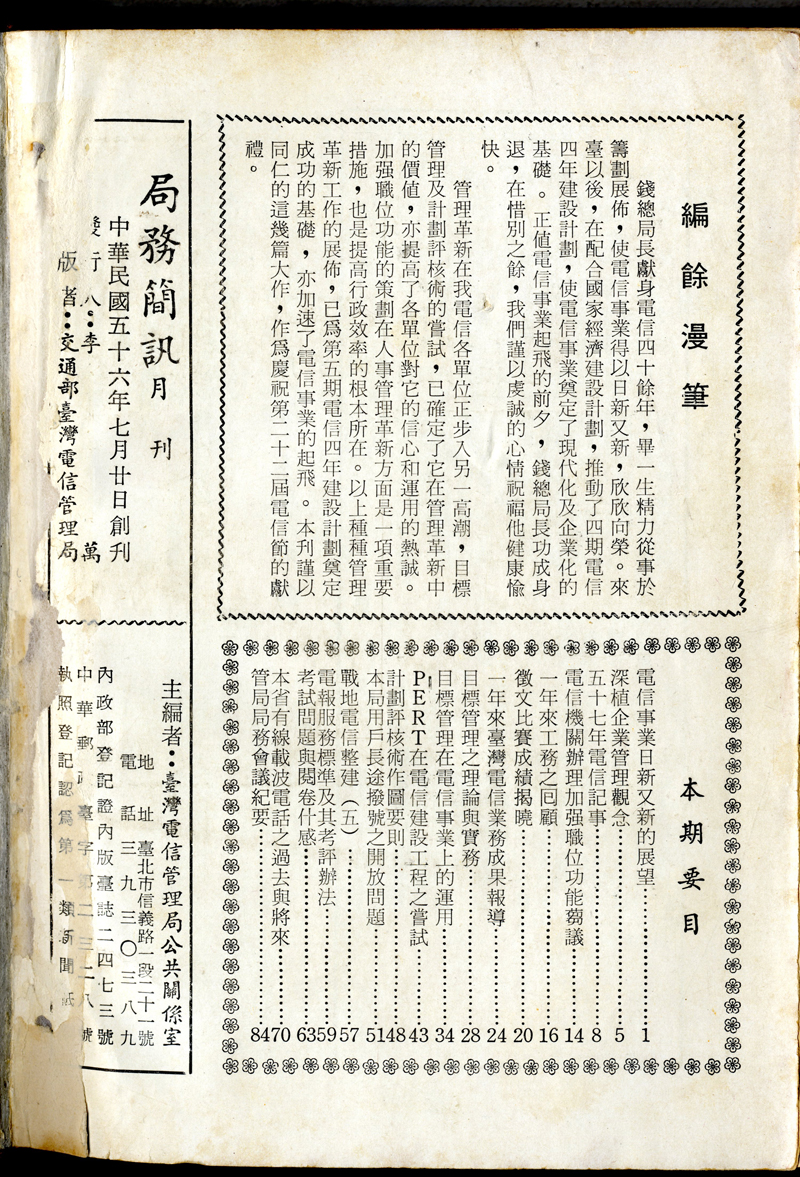 編餘漫筆
錢總局長獻身電信四十餘年，畢一生精力從事於
籌劃展佈，使電信事業得以日新又新，欣欣向榮。來
臺以後，在配合國家經濟建設計劃，推動了四期電信
四年建設計劃，使電信事業奠定了現代化及企業化的
基礎。正值電信事業起飛的前夕，錢總局長功成身
退，在惜別之餘，我們謹以虔誠的心情祝福他健康愉
快。
管理革新在我電信各單位正步入另一高潮，目標
管理及計劃評核術的嘗試，已確定了它在管理革新中
的價值，亦提高了各單位對它的信心和運用的熱誠。
加强職位功能的策劃在人事管理革新方面是一項重要
措施，也是提高行政效率的根本所在。以上種種管理
革新工作的展佈，已爲第五期電信四年建設計劃奠定
成功的基礎，亦加速了電信事業的起飛。本刊謹以
同仁的這幾篇大作，作爲慶祝第二十二屆電信節的獻
禮。
本期要目
電信事業日新又新的展望……1
深植企業管理觀念……5
五十七年電信記事……8
電信機關辦理加强職位功能芻議……14
一年來工務之回顧……16
徵文比賽成績揭曉……20
一年來臺灣電信業務成果報導……24
目標管理之理論與實務……28
目標管理在電信事業上的運用……34
PERT在電信建設工程之嘗試……43
計劃評核術作圖要則……48
本局用戶長途撥號之開放問題……51
戰地電信整建（五）……57
電報服務標準及其考評辦法……59
考試問題與閱卷什感……63
本省有線載波電話之過去與將來……70
管局局務會議紀要……84
局務簡訊月刊
中華民國五十六年七月廿日創刊
發行人：李 萬
版者：交通部臺灣電信管理局
主編者：臺灣電信管理局公共關係室
地址 臺北市信義路一段二十一號
電話 三九三〇三八九
內政部登記證內版臺誌二四七三號
中華郵政臺字第二三二八號
執照登記認爲第一類新聞紙